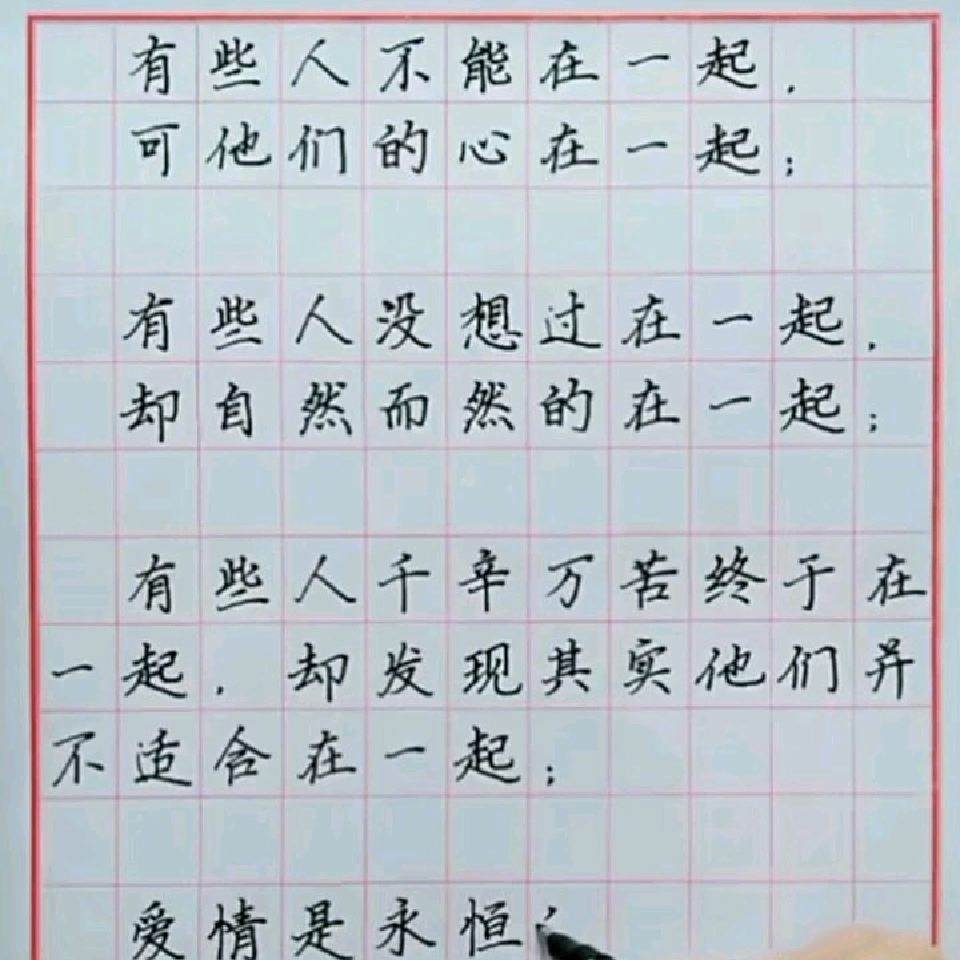 有些人不能在一起，
可他们的心在一起；
有些人没想过在一起，
却自然而然的在一起；
有些人千辛万苦终于在
一起，却发现其实他们并
不适合在一起；
爱情是永恒